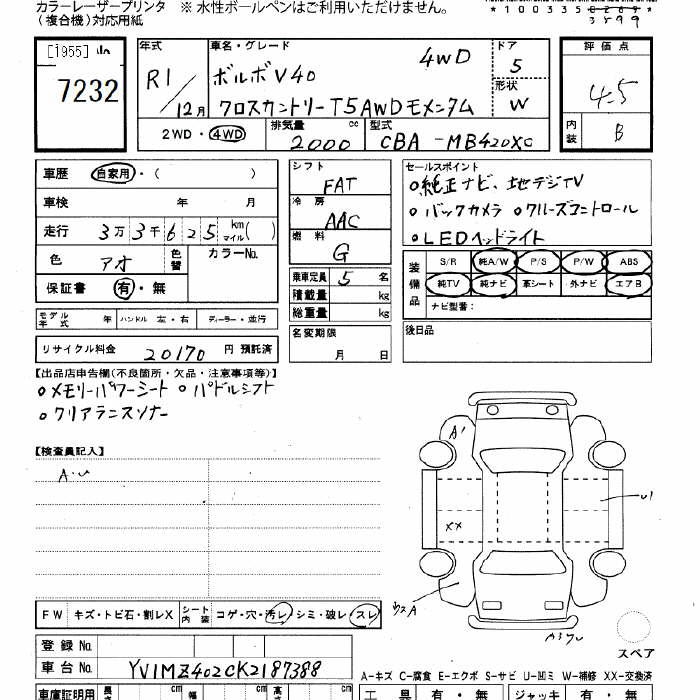 カラーレーザープリンタ ※ 水性ボールペンはご利用いただけません。
(複合機)対応用紙
*100335 0269*
3899
[1955]
7232
年式 R1/12月
車名・グレード
ボルボV40 4WD
クロスカントリーT5AWDモメンタム
ドア 5
形状 W
評価点 4.5
内装 B
2WD・4WD
排気量 2000 cc
型式 CBA-MB420XC
車歴 自家用・( )
車検 年 月
走行 3万3千625 km マイル( )
色 アオ 色替
カラーNo.
保証書 有・無
モデル年式 年 ハンドル 左・右 ディーラー・並行
リサイクル料金 20170 円 預託済
シフト FAT
冷房 AAC
燃料 G
乗車定員 5 名
積載量 kg
総重量 kg
名変期限
月 日
セールスポイント
○純正ナビ、地デジTV
○バックカメラ ○クルーズコントロール
○LEDヘッドライト
装備品
S/R 純A/W P/S P/W ABS
純TV 純ナビ 革シート 外ナビ エアB
ナビ型番:
後日品
【出品店申告欄(不良箇所・欠品・注意事項等)】
○メモリーパワーシート ○パドルシフト
○クリアランスソナー
【検査員記入】
A・U
A1
U1
XX
ウスA
FW キズ・トビ石・割レX シート内装 コゲ・穴・汚レ・シミ・破レ・スレ
登録No.
車台No. YV1MZ402CK2187388
スペア
A-キズ C-腐食 E-エクボ S-サビ U-凹ミ W-補修 XX-交換済
車庫証明用 長さ cm 幅 cm 高さ cm
工具 有・無 ジャッキ 有・無